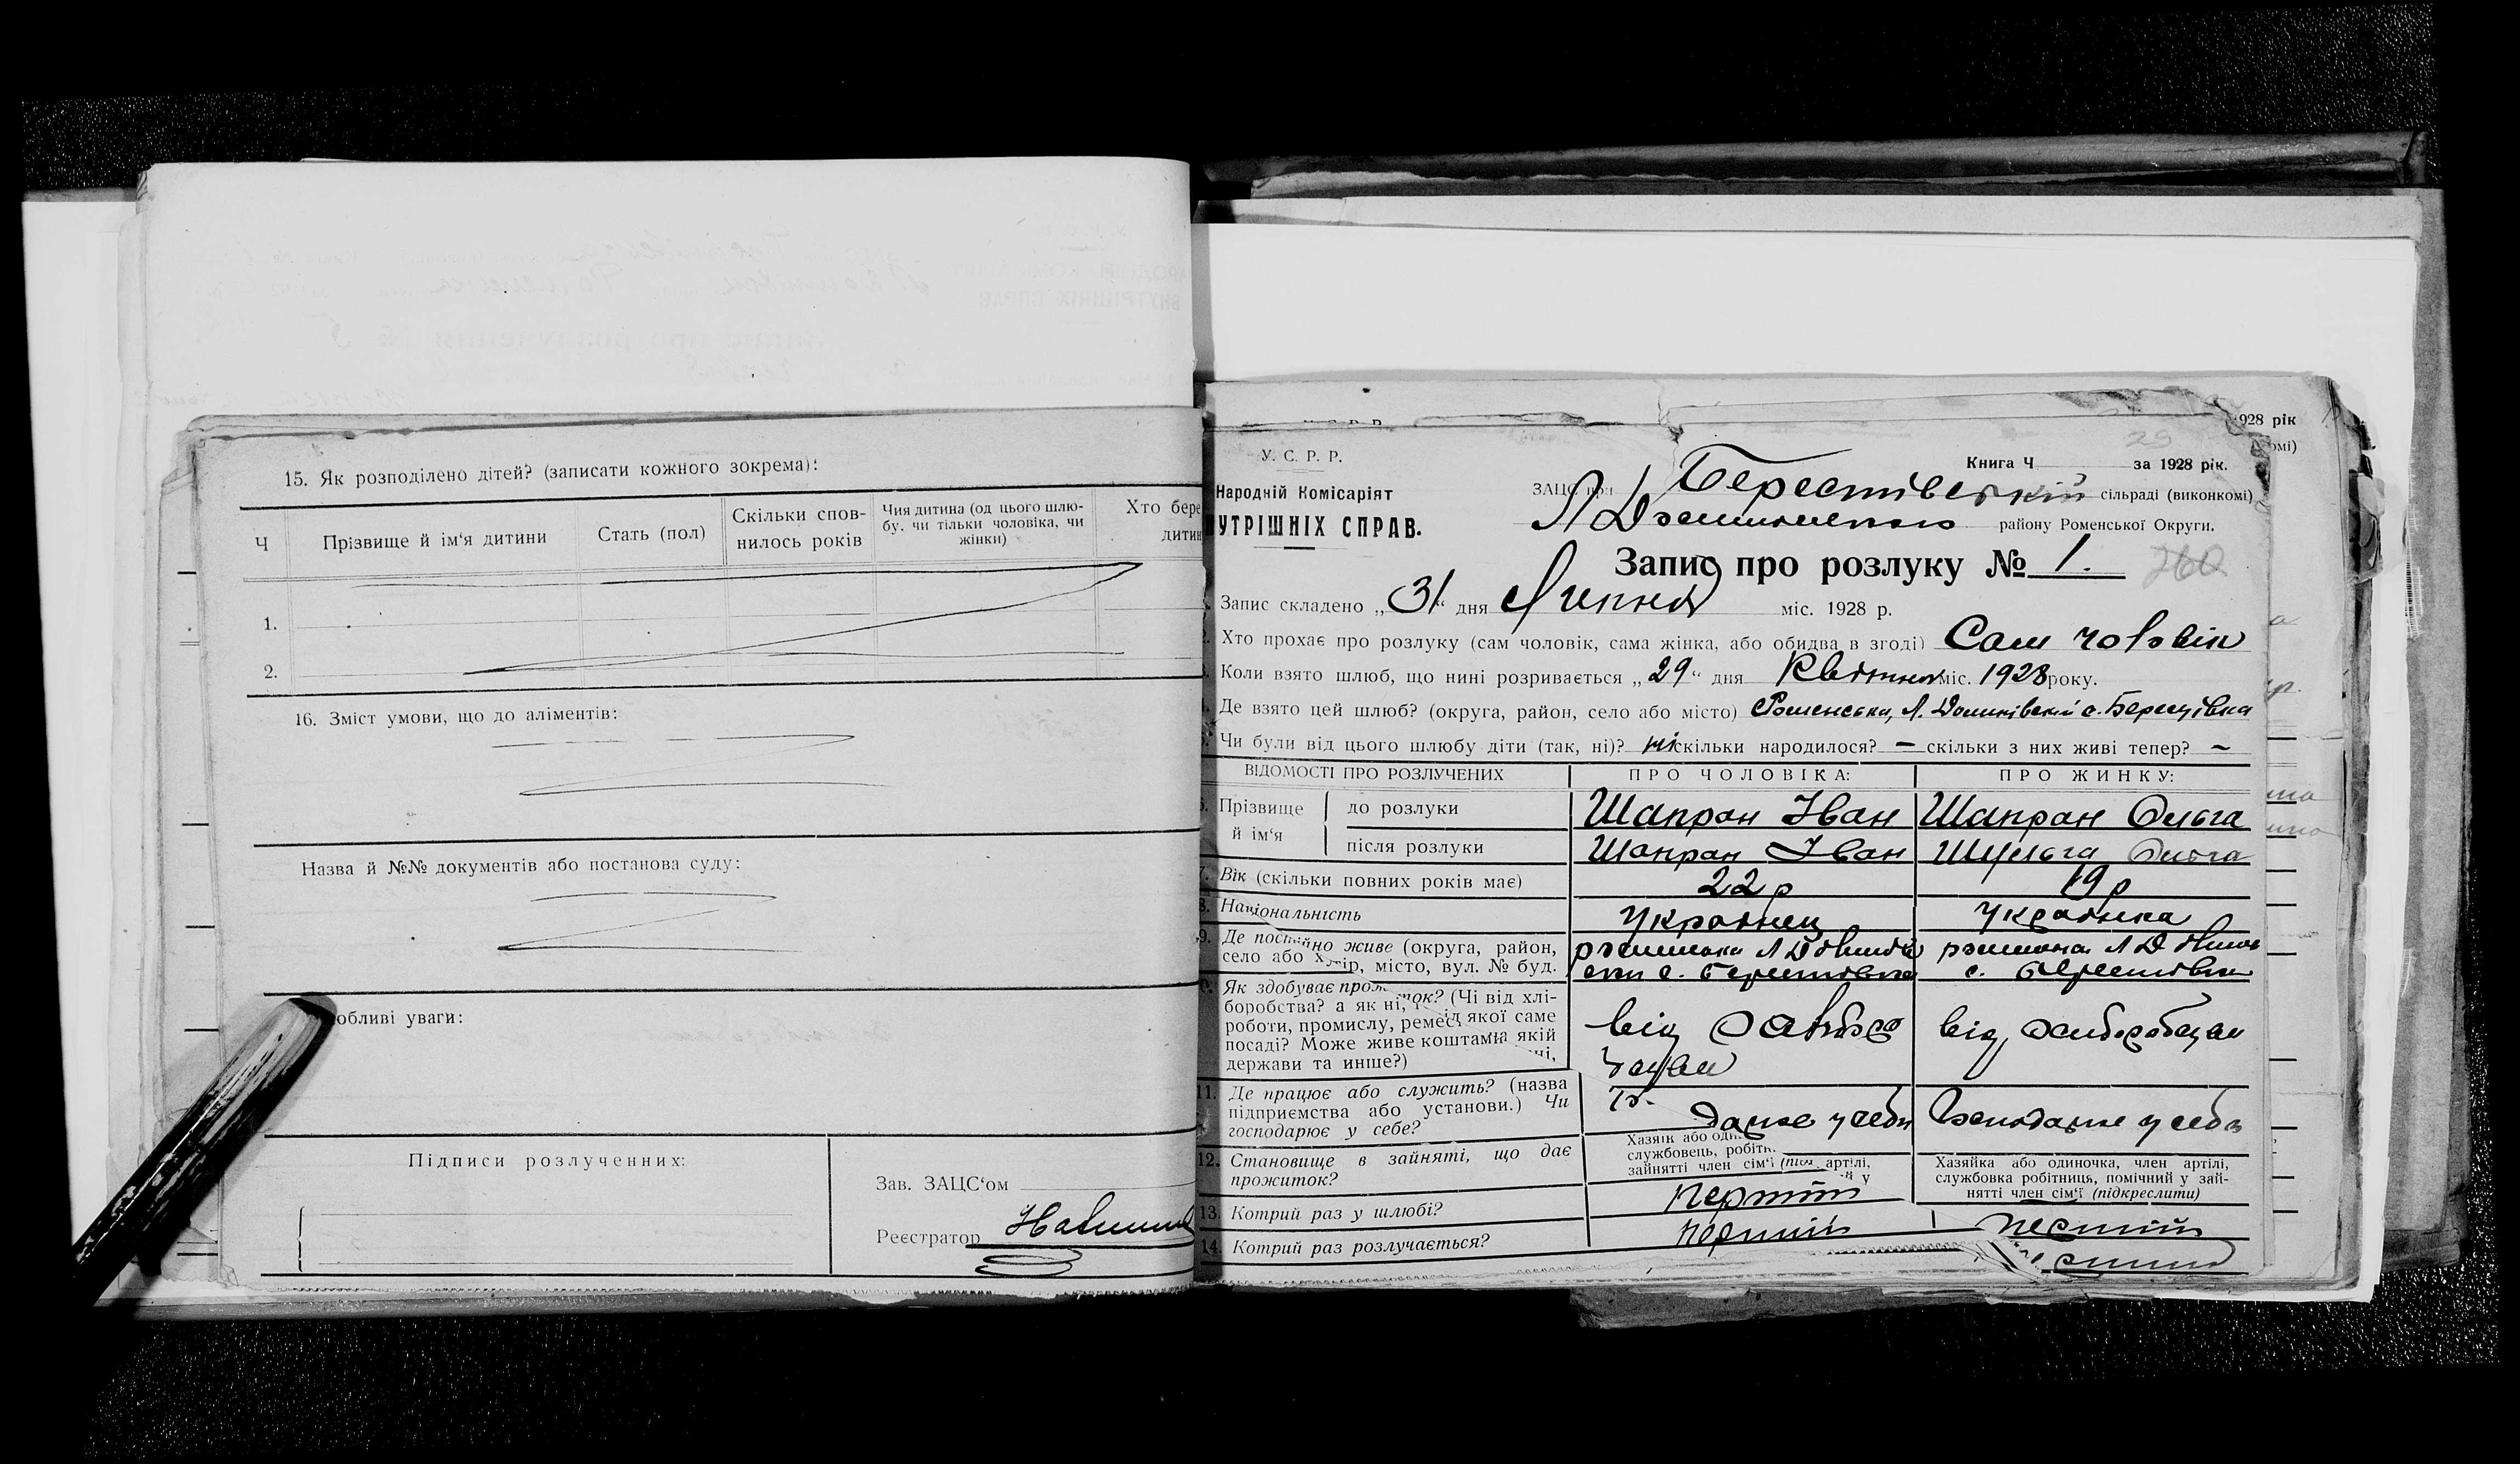 15. Як розподілено дітей? (записати кожного зокрема):
Ч
Прізвище й ім'я дитини
Стать (пол)
Скільки спов-
нилось років
Чия дитина (од цього шлю-
бу, чи тільки чоловіка, чи
жінки)
Хто бере
дитин
1.
2.
16. Зміст умови, що до аліментів:
Назва й №№ документів або постанова суду:
обливі уваги:
Підписи розлученних:
Зав. ЗАЦС'ом
Реєстратор
928 рік
омі)
У. С. Р. Р.
Народній Комісаріят
УТРІШНІХ СПРАВ.
Книга Ч за 1928 рік.
ЗАЦС при Берестівській сільраді (виконкомі)
району Роменської Округи.
Запис про розлуку № 1.
260
Запис складено „31“ дня Липня міс. 1928 р.
Хто прохає про розлуку (сам чоловік, сама жінка, або обидва в згоді) Сам чоловік
Коли взято шлюб, що нині розривається „29“ дня Квітня міс. 1928 року.
Де взято цей шлюб? (округа, район, село або місто) Роменська, Л. Долинівський с. Берестівка
Чи були від цього шлюбу діти (так, ні)? ні скільки народилося? — скільки з них живі тепер? —
ВІДОМОСТІ ПРО РОЗЛУЧЕНИХ
ПРО ЧОЛОВІКА:
ПРО ЖИНКУ:
Прізвище й ім'я
до розлуки
Шапран Іван
Шапран Ольга
після розлуки
Шапран Іван
Шульга Ольга
7. Вік (скільки повних років має)
22 р
19 р
8. Національність
Українец
Українка
9. Де постійно живе (округа, район,
село або хутір, місто, вул. № буд.
с. Берестовка
с. Берестовка
Як здобуває прожиток? (Чі від хлі-
боробства? а як ні, від якої саме
роботи, промислу, ремес
посаді? Може живе коштами якій
держави та инше?)
від
від
11. Де працює або служить? (назва
підприємства або установи.) Чи
господарює у себе?
дарює у себе
Господарює у себе
12. Становище в зайняті, що дає
прожиток?
Хазяїн або од
службовець, робітн.
зайнятті член сім'ї артілі,
Хазяйка або одиночка, член артілі,
службовка робітниця, помічний у зай-
нятті член сім'ї (підкреслити)
13. Котрий раз у шлюбі?
Перший
Перший
14. Котрий раз розлучається?
Перший